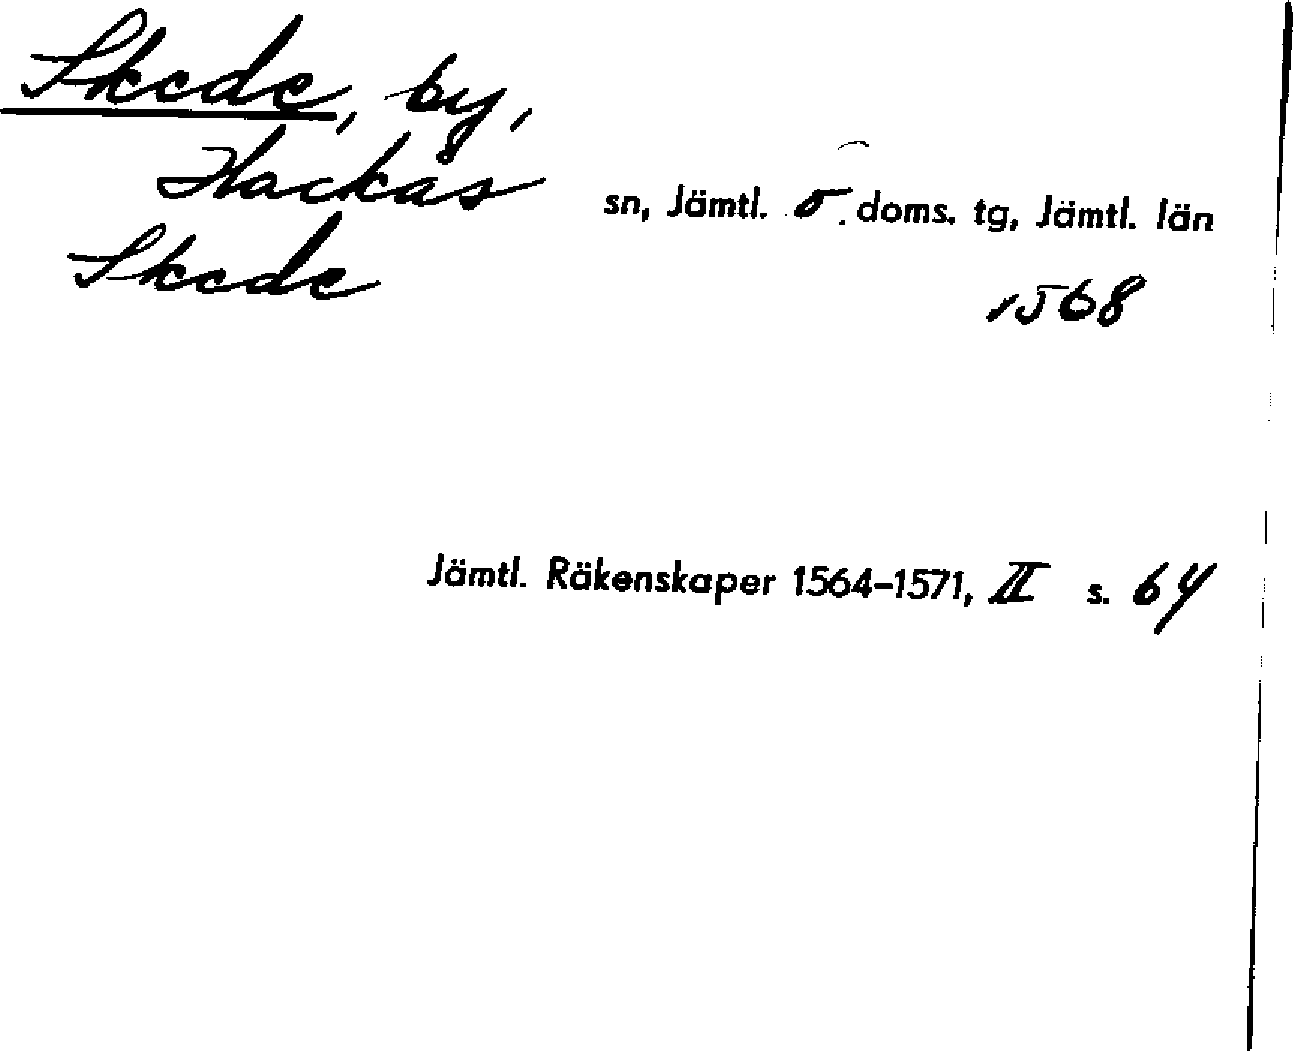 Skede, by,
Hackås sn, Jämtl. ö. doms. tg, Jämtl. län
Skede
1568
Jämtl. Räkenskaper 1564-1571, II s. 64